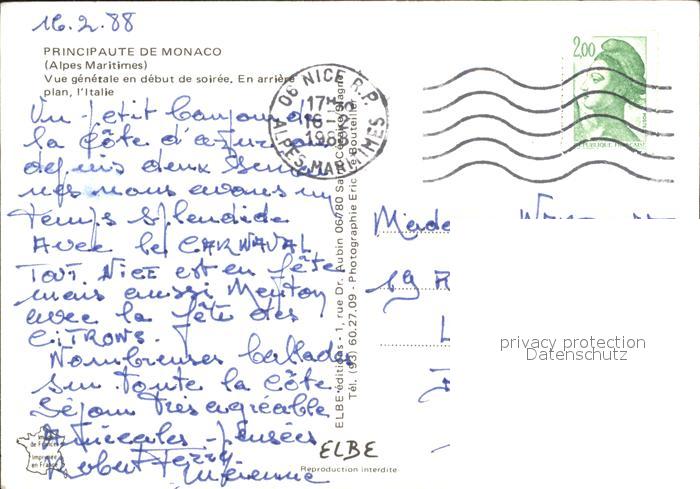 16.2.88
PRINCIPAUTE DE MONACO
(Alpes Maritimes)
Vue générale en début de soirée. En arrière
plan, l'Italie
Un petit bonjour de
la Côte d'Azur
depuis deux semai
nes nous avons un
temps splendide
Avec le CARNAVAL
TOUT NICE est en fête
mais aussi Menton
avec la fête des
CITRONS.
Nombreuses ballades
sur toute la Côte
Séjour très agréable
Amicales pensées
Robert
Image
de France
Imprimée
en France
ELBE
Reproduction interdite
ELBE-éditions - 1, rue Dr. Aubin 06780 Saint
Tél. (93) 60.27.09 - Photographie Eric
06 NICE R.P.
17H
16-2
1988
ALPES-MARITIMES
2,00
REPUBLIQUE FRANÇAISE
19
privacy protection
Datenschutz